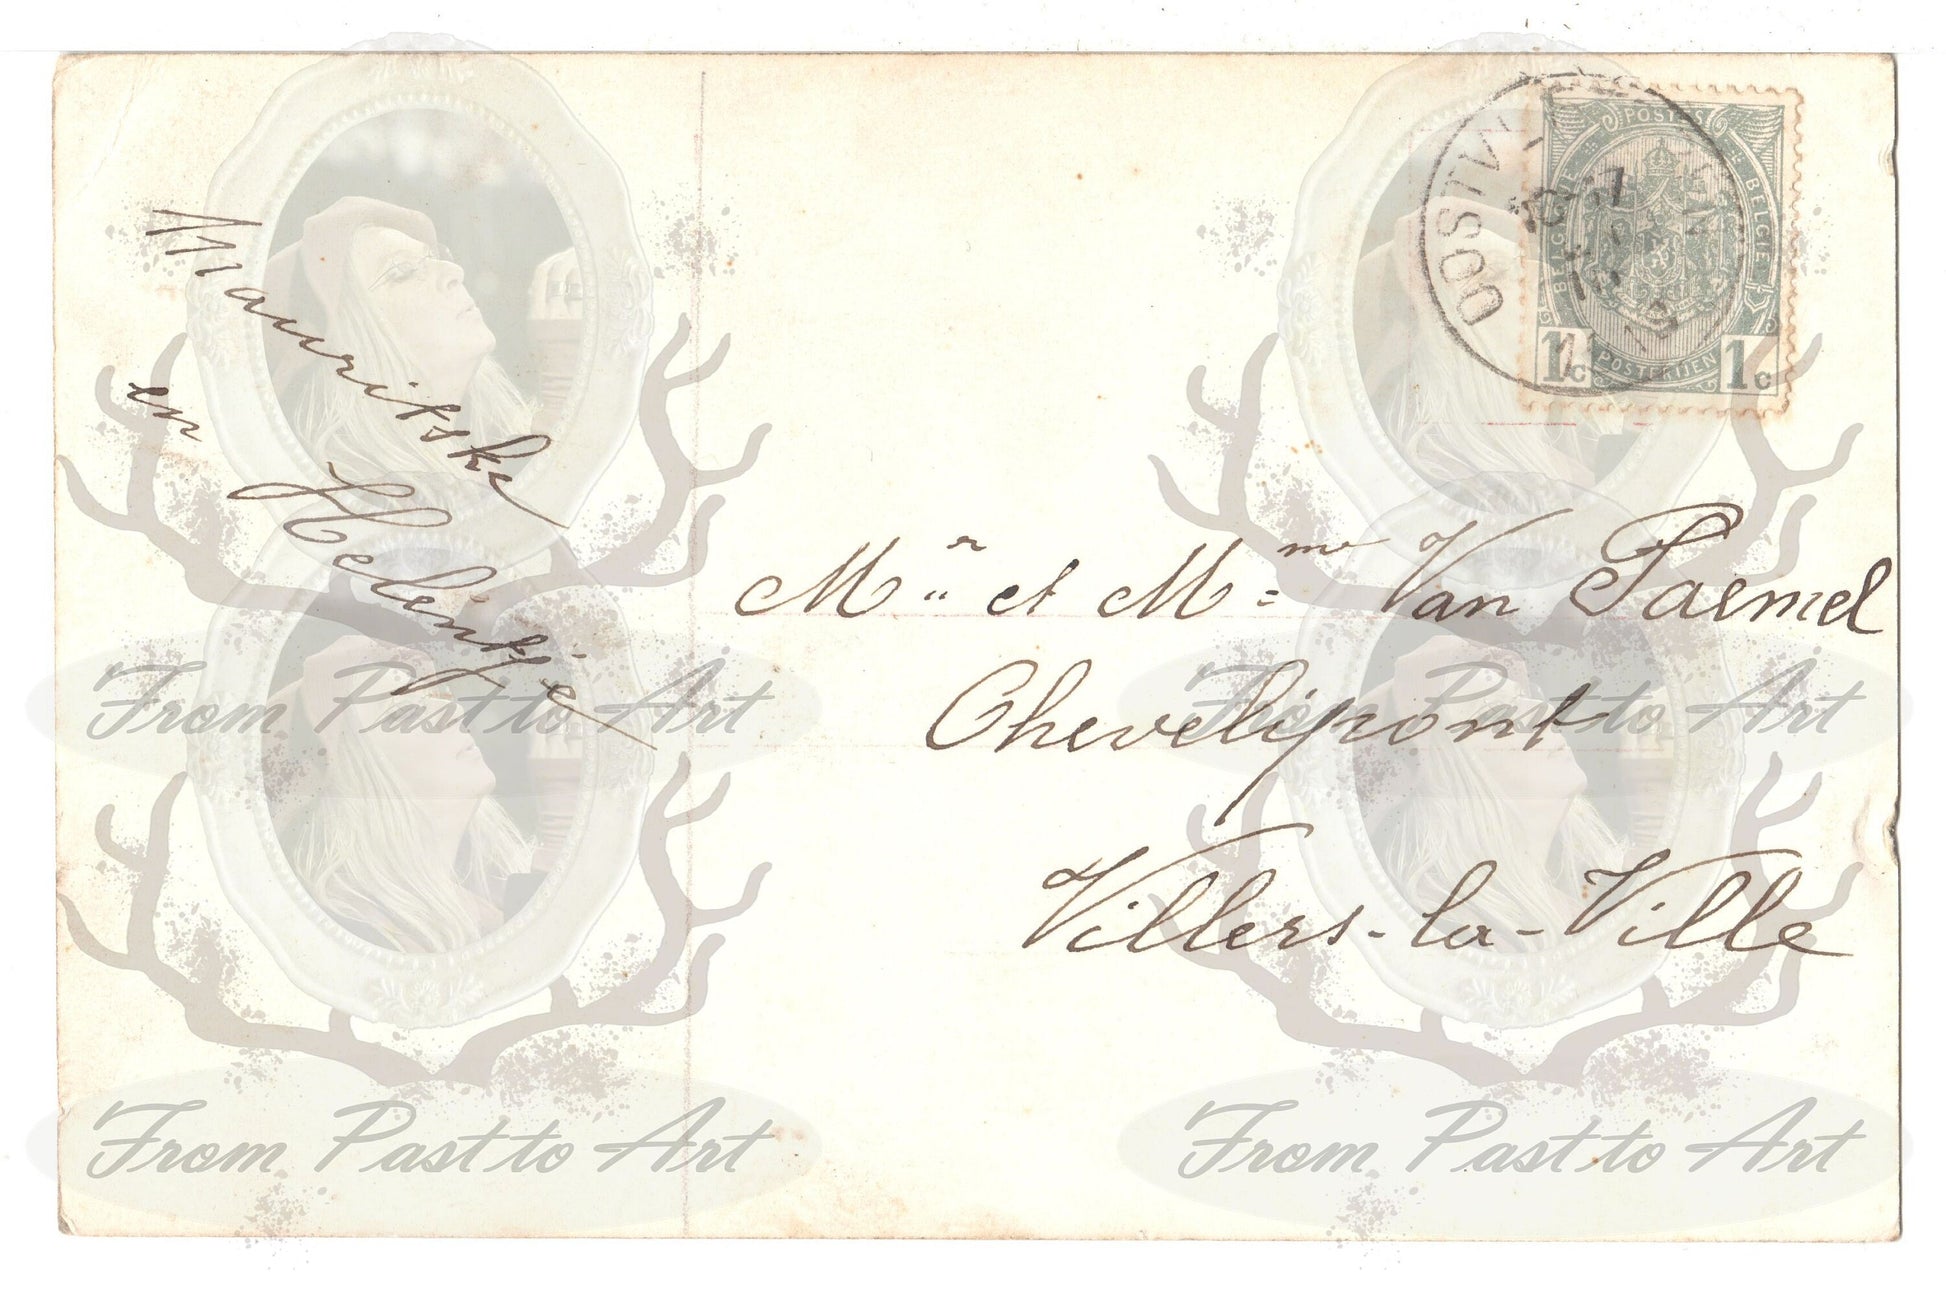 Mauritske
en
Helentje
POSTES
BELGIQUE
BELGIË
1c
POSTERIJEN
1c
Mr et Mme Van Paemel
Chevelipont
Villers-la-Ville
From Past to Art
From Past to Art
From Past to Art
From Past to Art